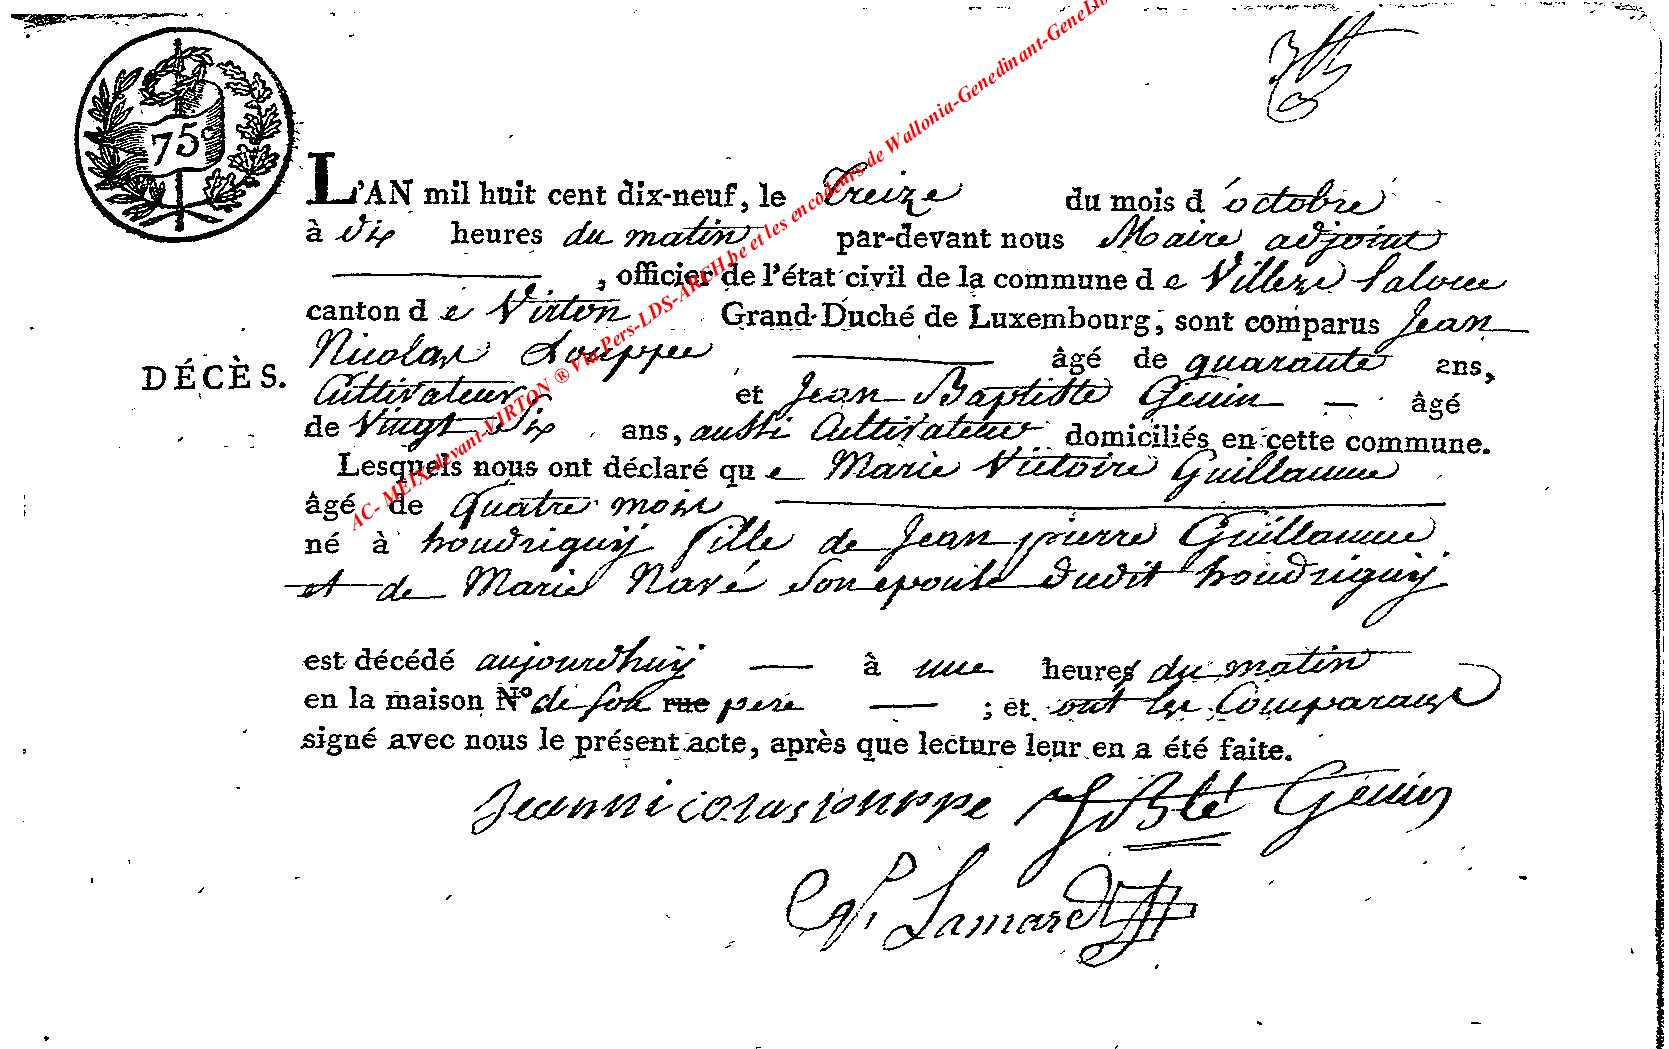 75c
L'AN mil huit cent dix-neuf, le Treize du mois d'octobre
à dix heures du matin par-devant nous Maire adjoint
, officier de l'état civil de la commune de Villers Laloue
canton de Virton Grand-Duché de Luxembourg, sont comparus Jean
Nicolas Louppe âgé de quarante ans,
DÉCÈS.
Cultivateur et Jean Baptiste Genin — âgé
de Vingt dix ans, aussi Cultivateur domiciliés en cette commune.
Lesquels nous ont déclaré que Marie Victoire Guillaume
âgé de quatre mois
né à houdriguÿ fille de Jean pierre Guillaume
et de Marie Navé son epouse dudit houdriguÿ
est décédé aujourdhuÿ — à une heures du matin
en la maison N° de son rue pere — ; et ont les Comparans
signé avec nous le présent acte, après que lecture leur en a été faite.
Jean nicolas louppe JBte Genin
Lamard
AC- MEIX-devant-VIRTON ® Via Pers-LDS-ARCH.be et les encodeurs de Wallonia-Genedinant-GeneLux